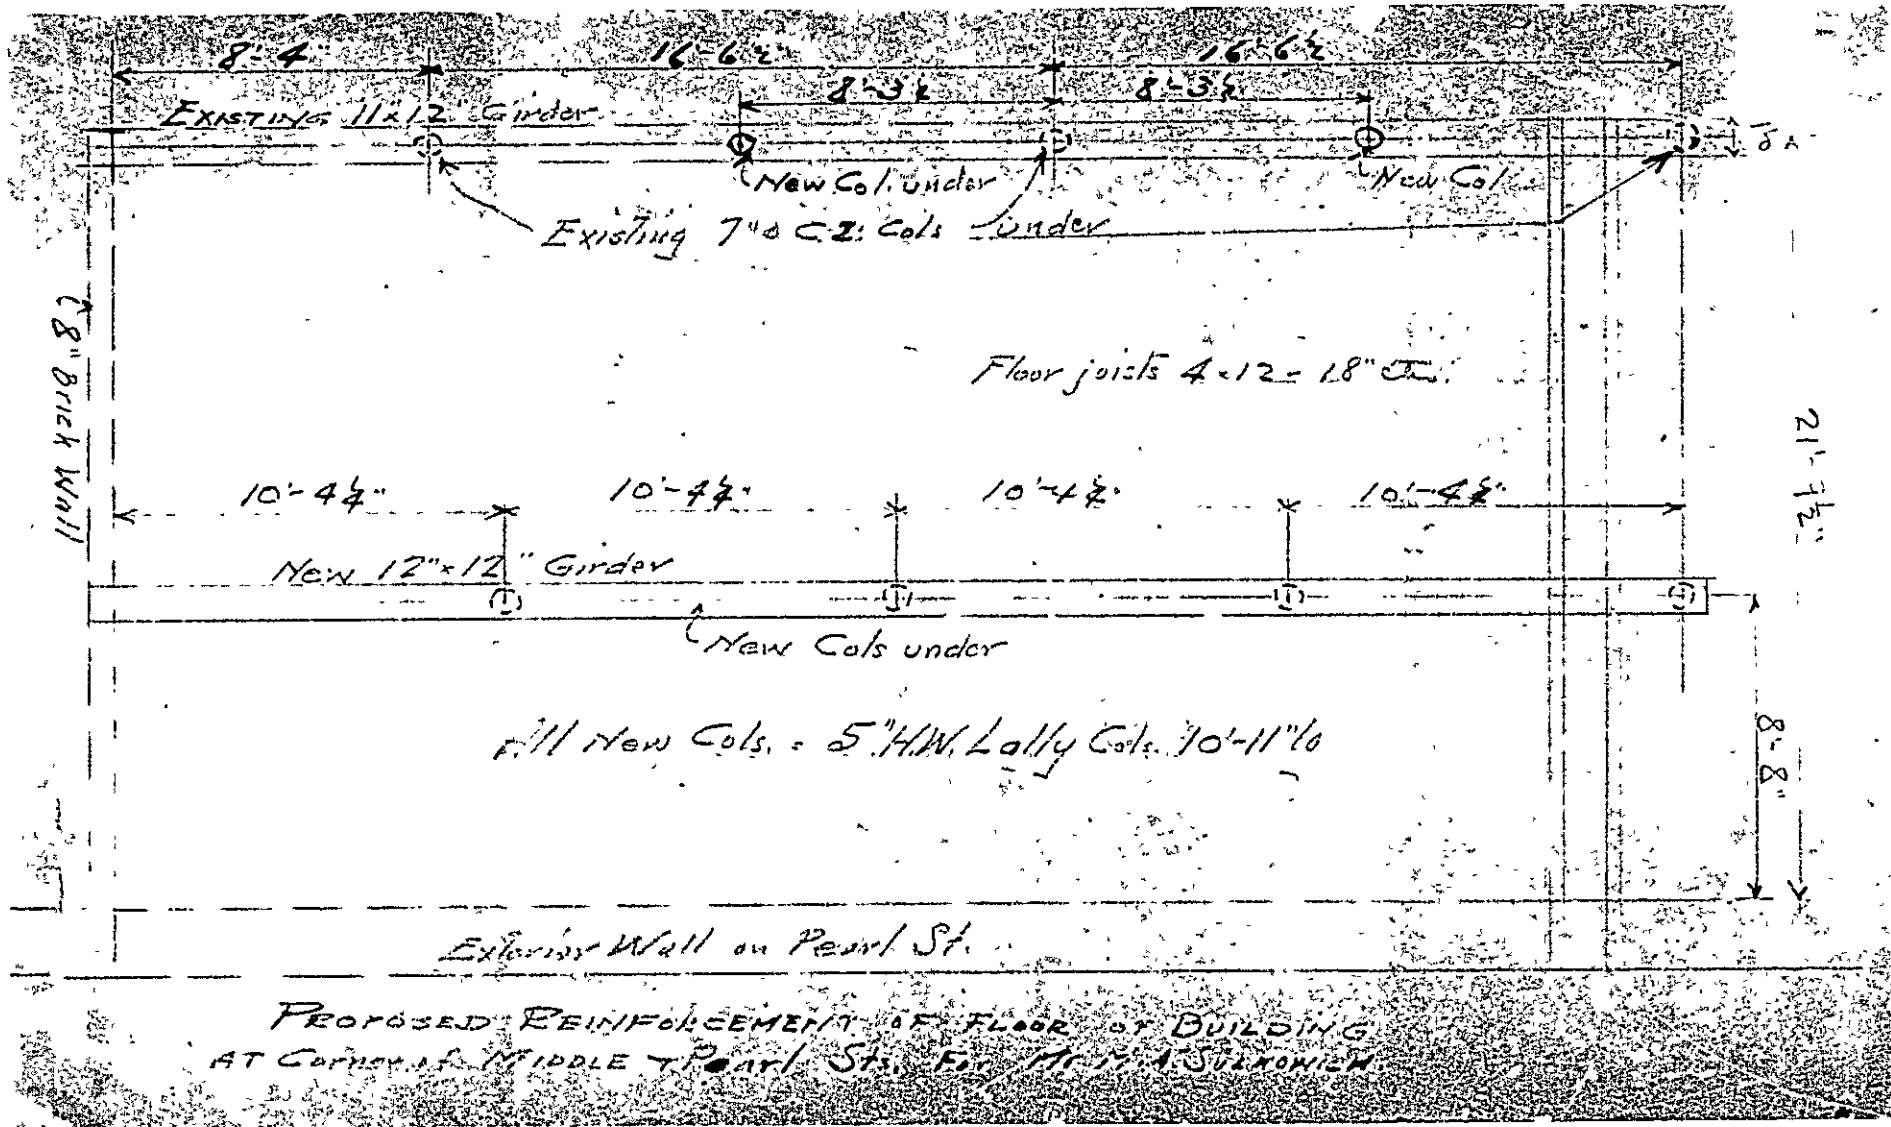 8'-4"
16-6½
16-6½
8'-3¼
8'-3¼
EXISTING 11x12 Girder
New Col. under
New Col
Existing 7"ø C.I. Cols under
8" Brick Wall
Floor joists 4x12 - 18"
21'-7½"
10'-4¼"
10'-4¼"
10'-4¼"
10'-4¼"
New 12"x12" Girder
New Cols under
All New Cols. = 5" H.W. Lally Cols. 10'-11" lo
8'-8"
Exterior Wall on Pearl St.
PROPOSED REINFORCEMENT OF FLOOR OF BUILDING
AT Corner of MIDDLE & Pearl Sts. For Mr. SULKOWICH